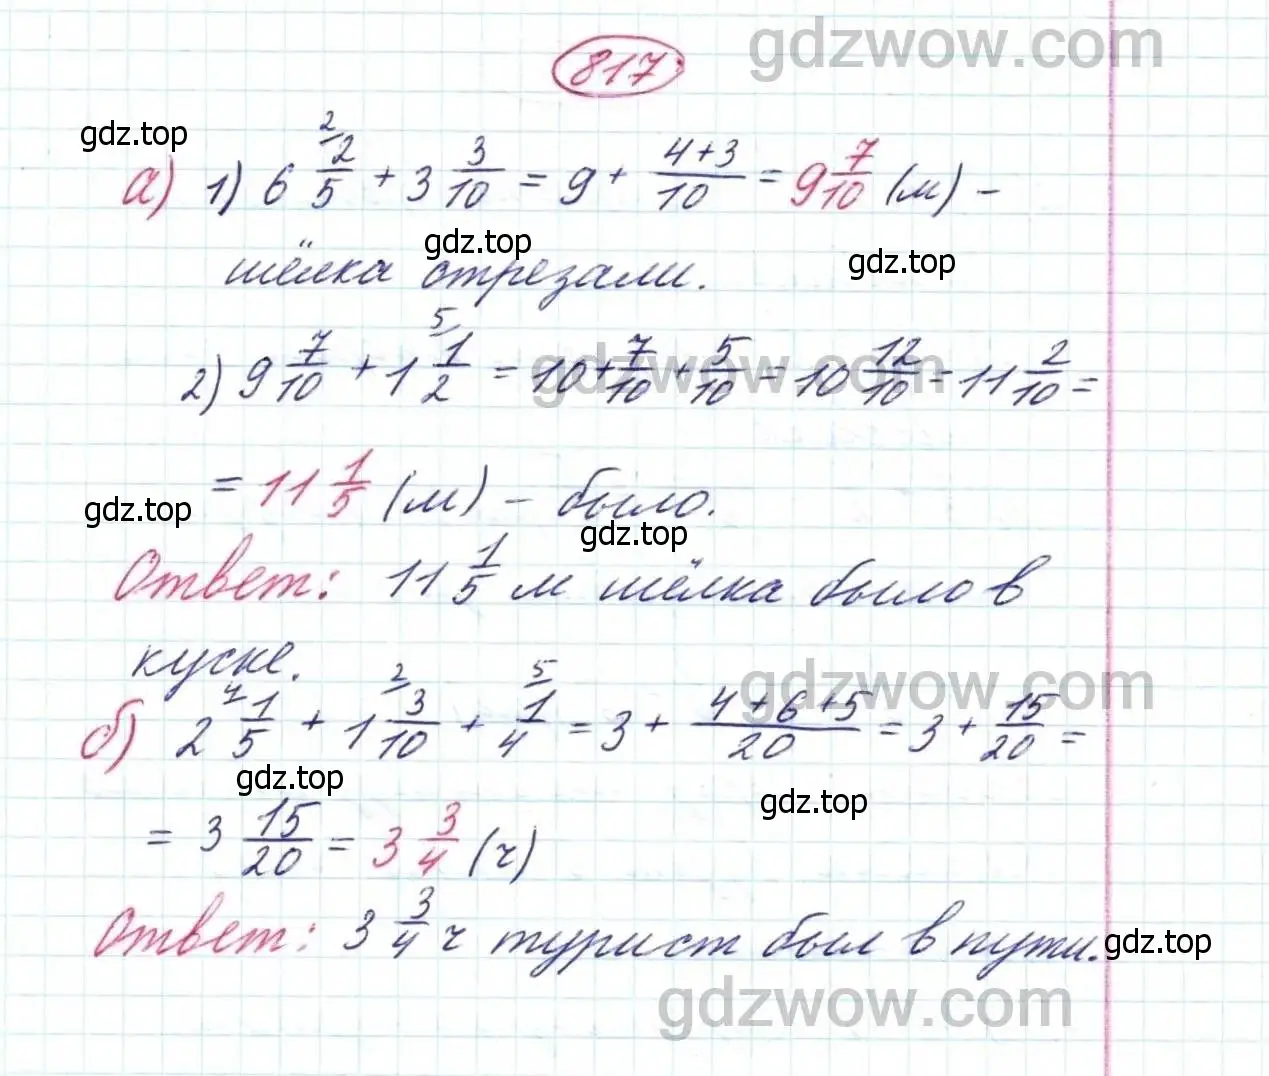 gdzwow.com
817
gdz.top
а) 1) 6 2/5 (2/) + 3 3/10 = 9 + (4+3)/10 = 9 7/10 (м) –
gdz.top
gdz.top
шёлка отрезали.
2) 9 7/10 + 1 1/2 (5/) = 10 + 7/10 + 5/10 = 10 12/10 = 11 2/10 =
gdzwow.com
= 11 1/5 (м) – было.
gdz.top
gdz.top
Ответ: 11 1/5 м шёлка было в
куске.
gdzwow.com
б) 2 1/5 (4/) + 1 3/10 (2/) + 1/4 (5/) = 3 + (4+6+5)/20 = 3 + 15/20 =
gdz.top
gdz.top
= 3 15/20 = 3 3/4 (ч)
Ответ: 3 3/4 ч турист был в пути.
gdz.top
gdzwow.com